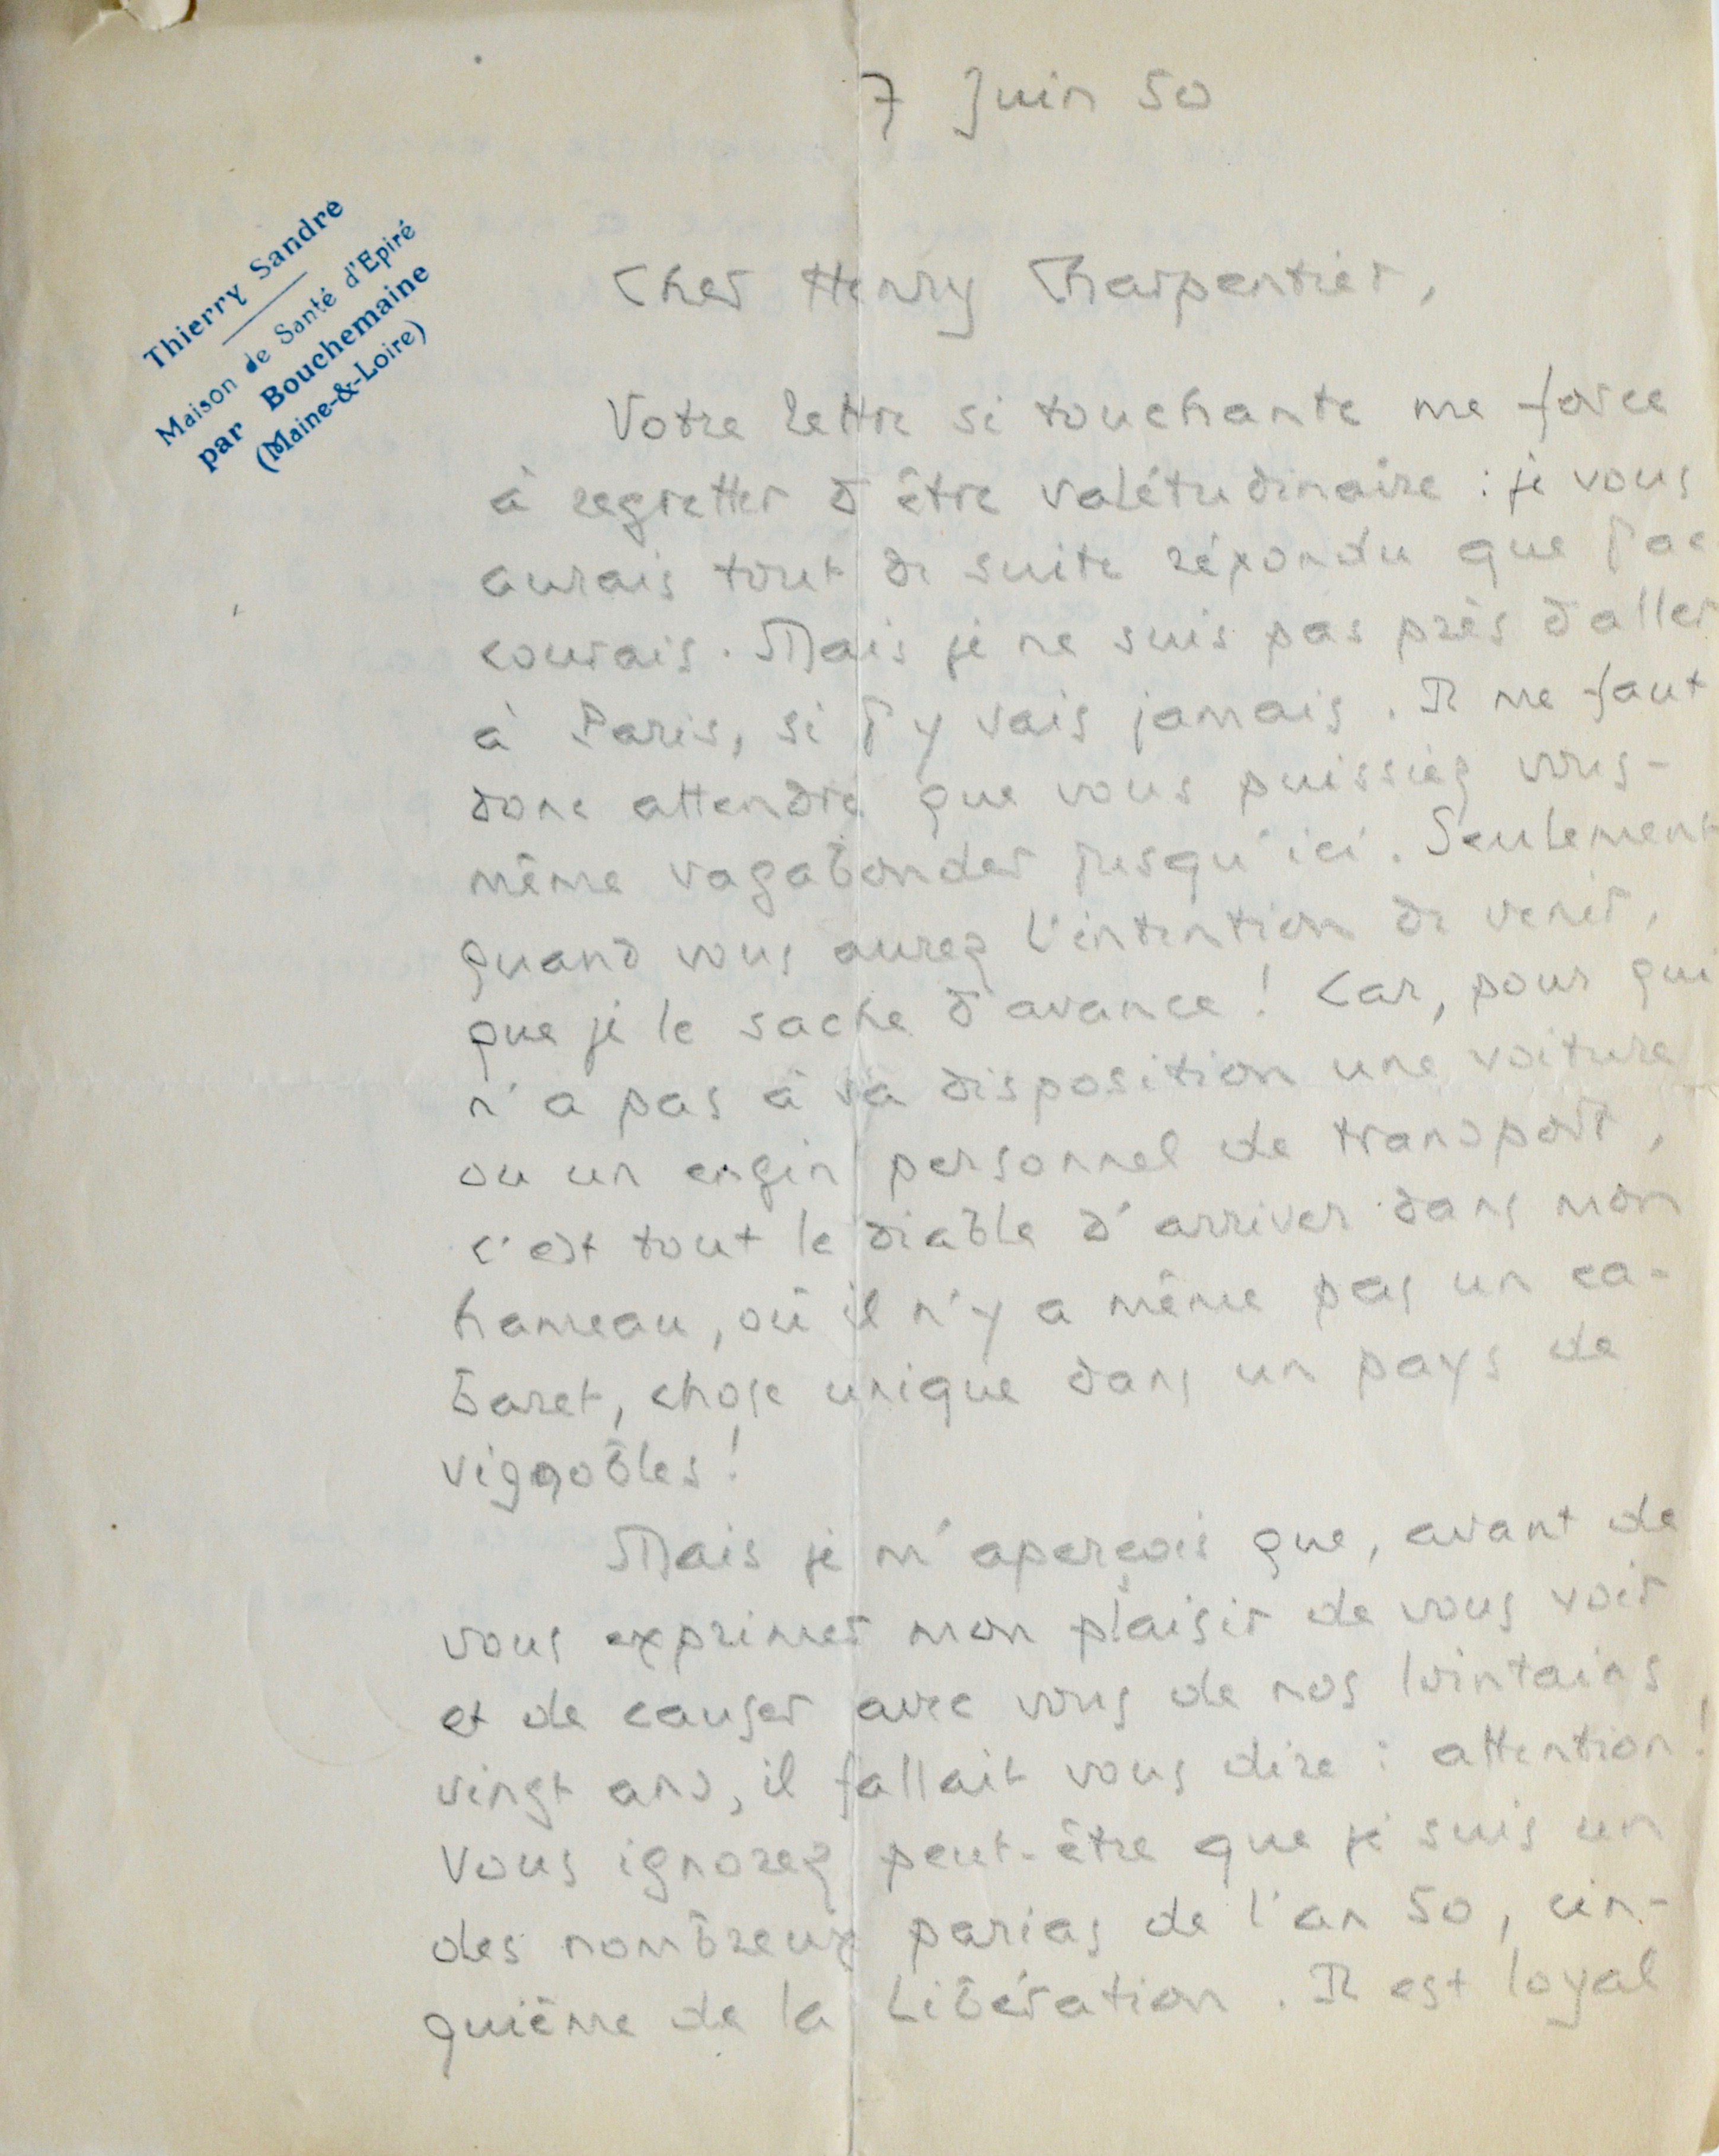 7 Juin 50
Thierry Sandre
Maison de Santé d'Epiré
par Bouchemaine
(Maine-&-Loire)
Cher Henry Charpentier,
Votre lettre si touchante me force
à regretter d'être valétudinaire : je vous
aurais tout de suite répondu que j'ac
courais. Mais je ne suis pas près d'aller
à Paris, si j'y vais jamais. Il me faut
donc attendre que vous puissiez vous-
même vagabonder jusqu'ici. Seulement
quand vous aurez l'intention de venir,
que je le sache d'avance ! Car, pour qui
n'a pas à sa disposition une voiture
ou un engin personnel de transport,
c'est tout le diable d'arriver dans mon
hameau, où il n'y a même pas un ca-
baret, chose unique dans un pays de
vignobles !
Mais je m'aperçois que, avant de
vous exprimer mon plaisir de vous voir
et de causer avec vous de nos lointains
vingt ans, il fallait vous dire : attention !
Vous ignorez peut-être que je suis un
des nombreux parias de l'an 50, cin-
quième de la Libération. Il est loyal